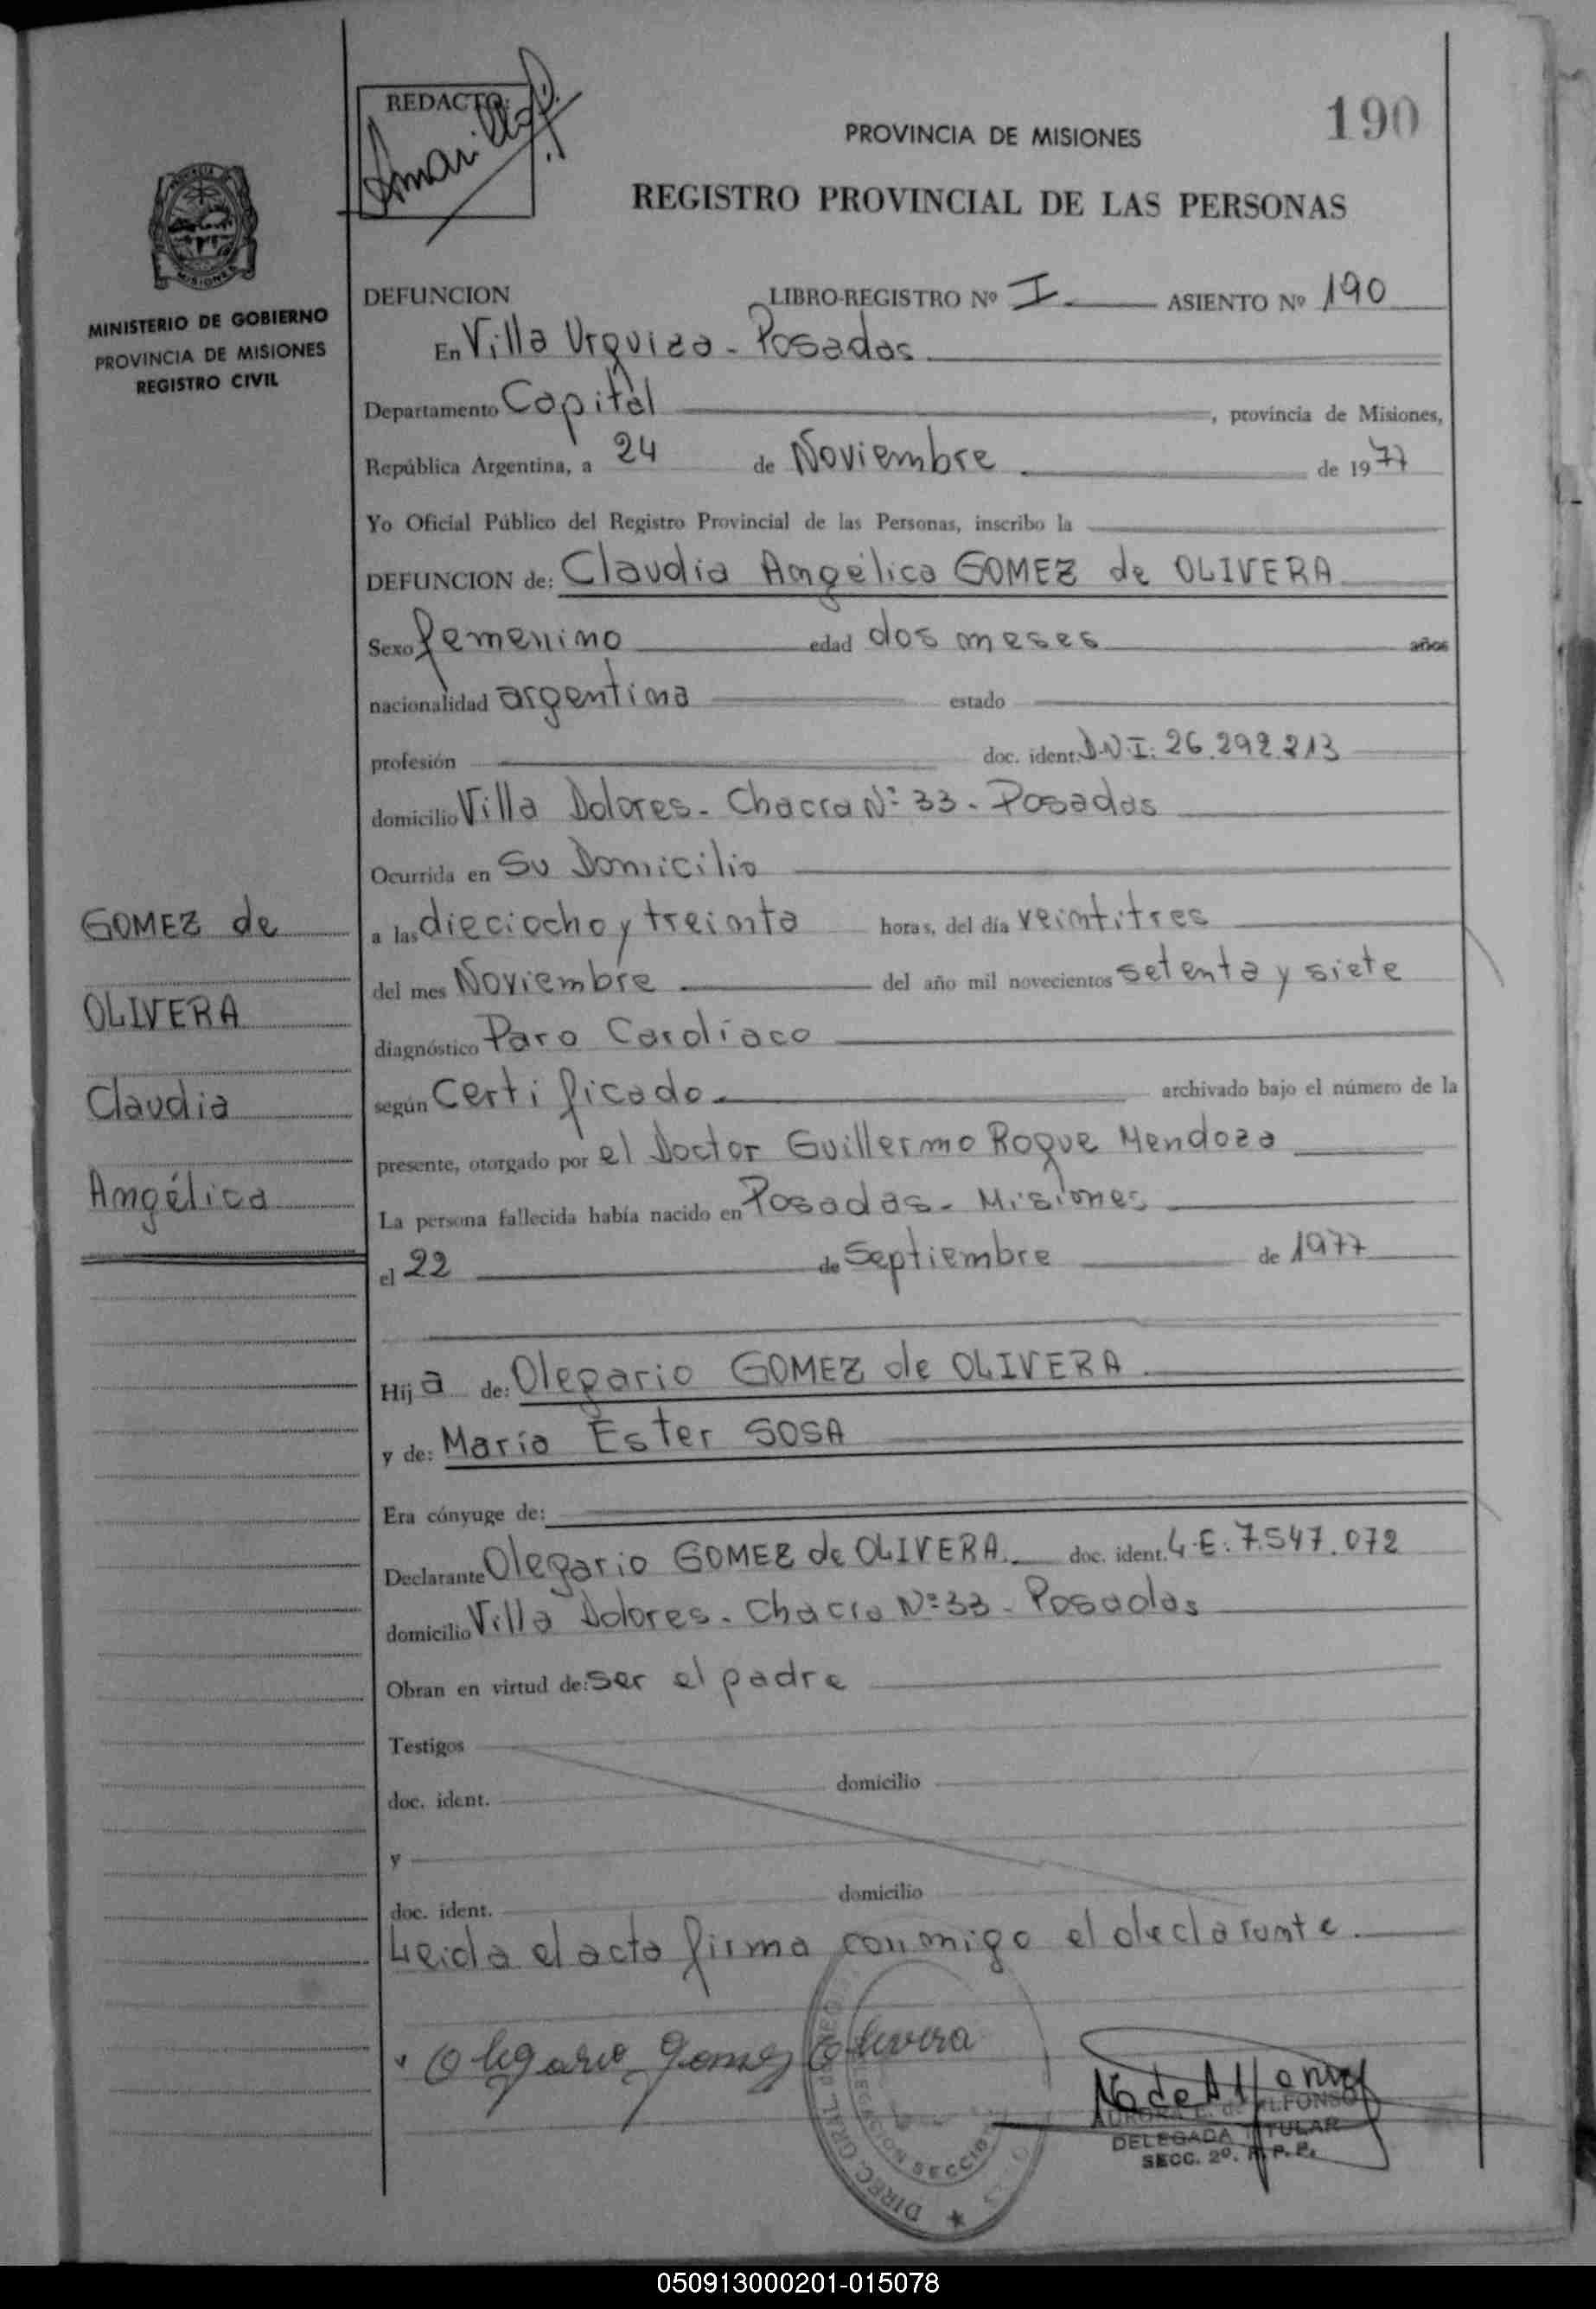 190
REDACTO:
PROVINCIA DE MISIONES
REGISTRO PROVINCIAL DE LAS PERSONAS
MISIONES
MINISTERIO DE GOBIERNO
PROVINCIA DE MISIONES
REGISTRO CIVIL
DEFUNCION LIBRO-REGISTRO Nº I ASIENTO Nº 190
En Villa Urquiza - Posadas
Departamento Capital, provincia de Misiones,
República Argentina, a 24 de Noviembre de 1977
Yo Oficial Público del Registro Provincial de las Personas, inscribo la
DEFUNCION de: Claudia Angélica GOMEZ de OLIVERA
Sexo femenino edad dos meses años
nacionalidad argentina estado
profesión doc. ident. D.N.I: 26.292.213
domicilio Villa Dolores - Chacra Nº 33 - Posadas
Ocurrida en Su Domicilio
a las dieciocho y treinta horas, del día veintitres
del mes Noviembre del año mil novecientos setenta y siete
diagnóstico Paro Cardíaco
según Certificado archivado bajo el número de la
presente, otorgado por el Doctor Guillermo Roque Mendoza
La persona fallecida había nacido en Posadas - Misiones
el 22 de Septiembre de 1977
GOMEZ de
OLIVERA
Claudia
Angélica
Hija de: Olegario GOMEZ de OLIVERA
y de: María Ester SOSA
Era cónyuge de:
Declarante Olegario GOMEZ de OLIVERA doc. ident. L.E: 7.547.072
domicilio Villa Dolores - Chacra Nº 33 - Posadas
Obran en virtud de: ser el padre
Testigos
doc. ident. domicilio
y
doc. ident. domicilio
Leida el acta firma conmigo el declarante
Olegario Gomez Olivera
DIREC. GRAL.
SECCIO
de ALFONSO
DELEGADA TITULAR
SECC. 2º. R. P. P.
050913000201-015078